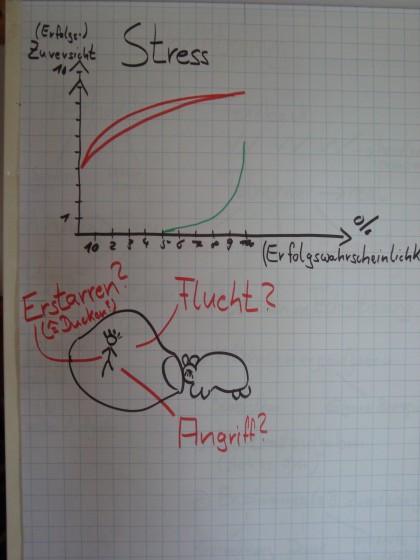 (Erfolgs-)
Zuversicht
Stress
10
1
10 2 3 4 5 6 7 8 9
%
(Erfolgswahrscheinlichk
Erstarren?
(≈Ducken?)
Flucht?
Angriff?